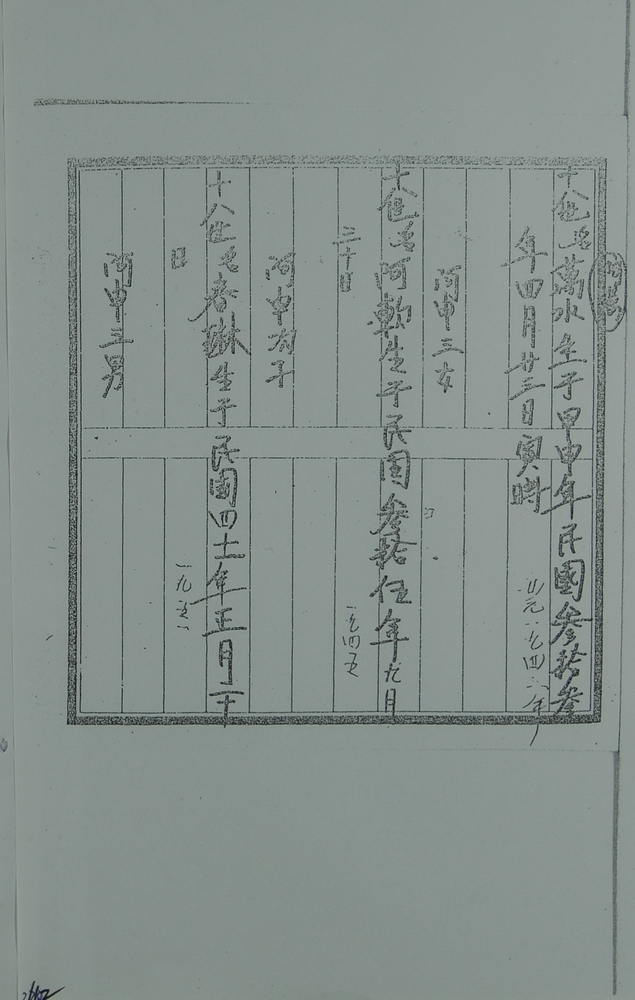 十八世名萬水生于甲申年民國參拾參
年四月廿三日寅時
公元一九四 年
阿申三女
十八世名阿軟生于民國參拾伍年九月
三十日
一九四五
阿申次子
十八世名春琳生于民國四十年正月二十
日
一九五一
阿申三男